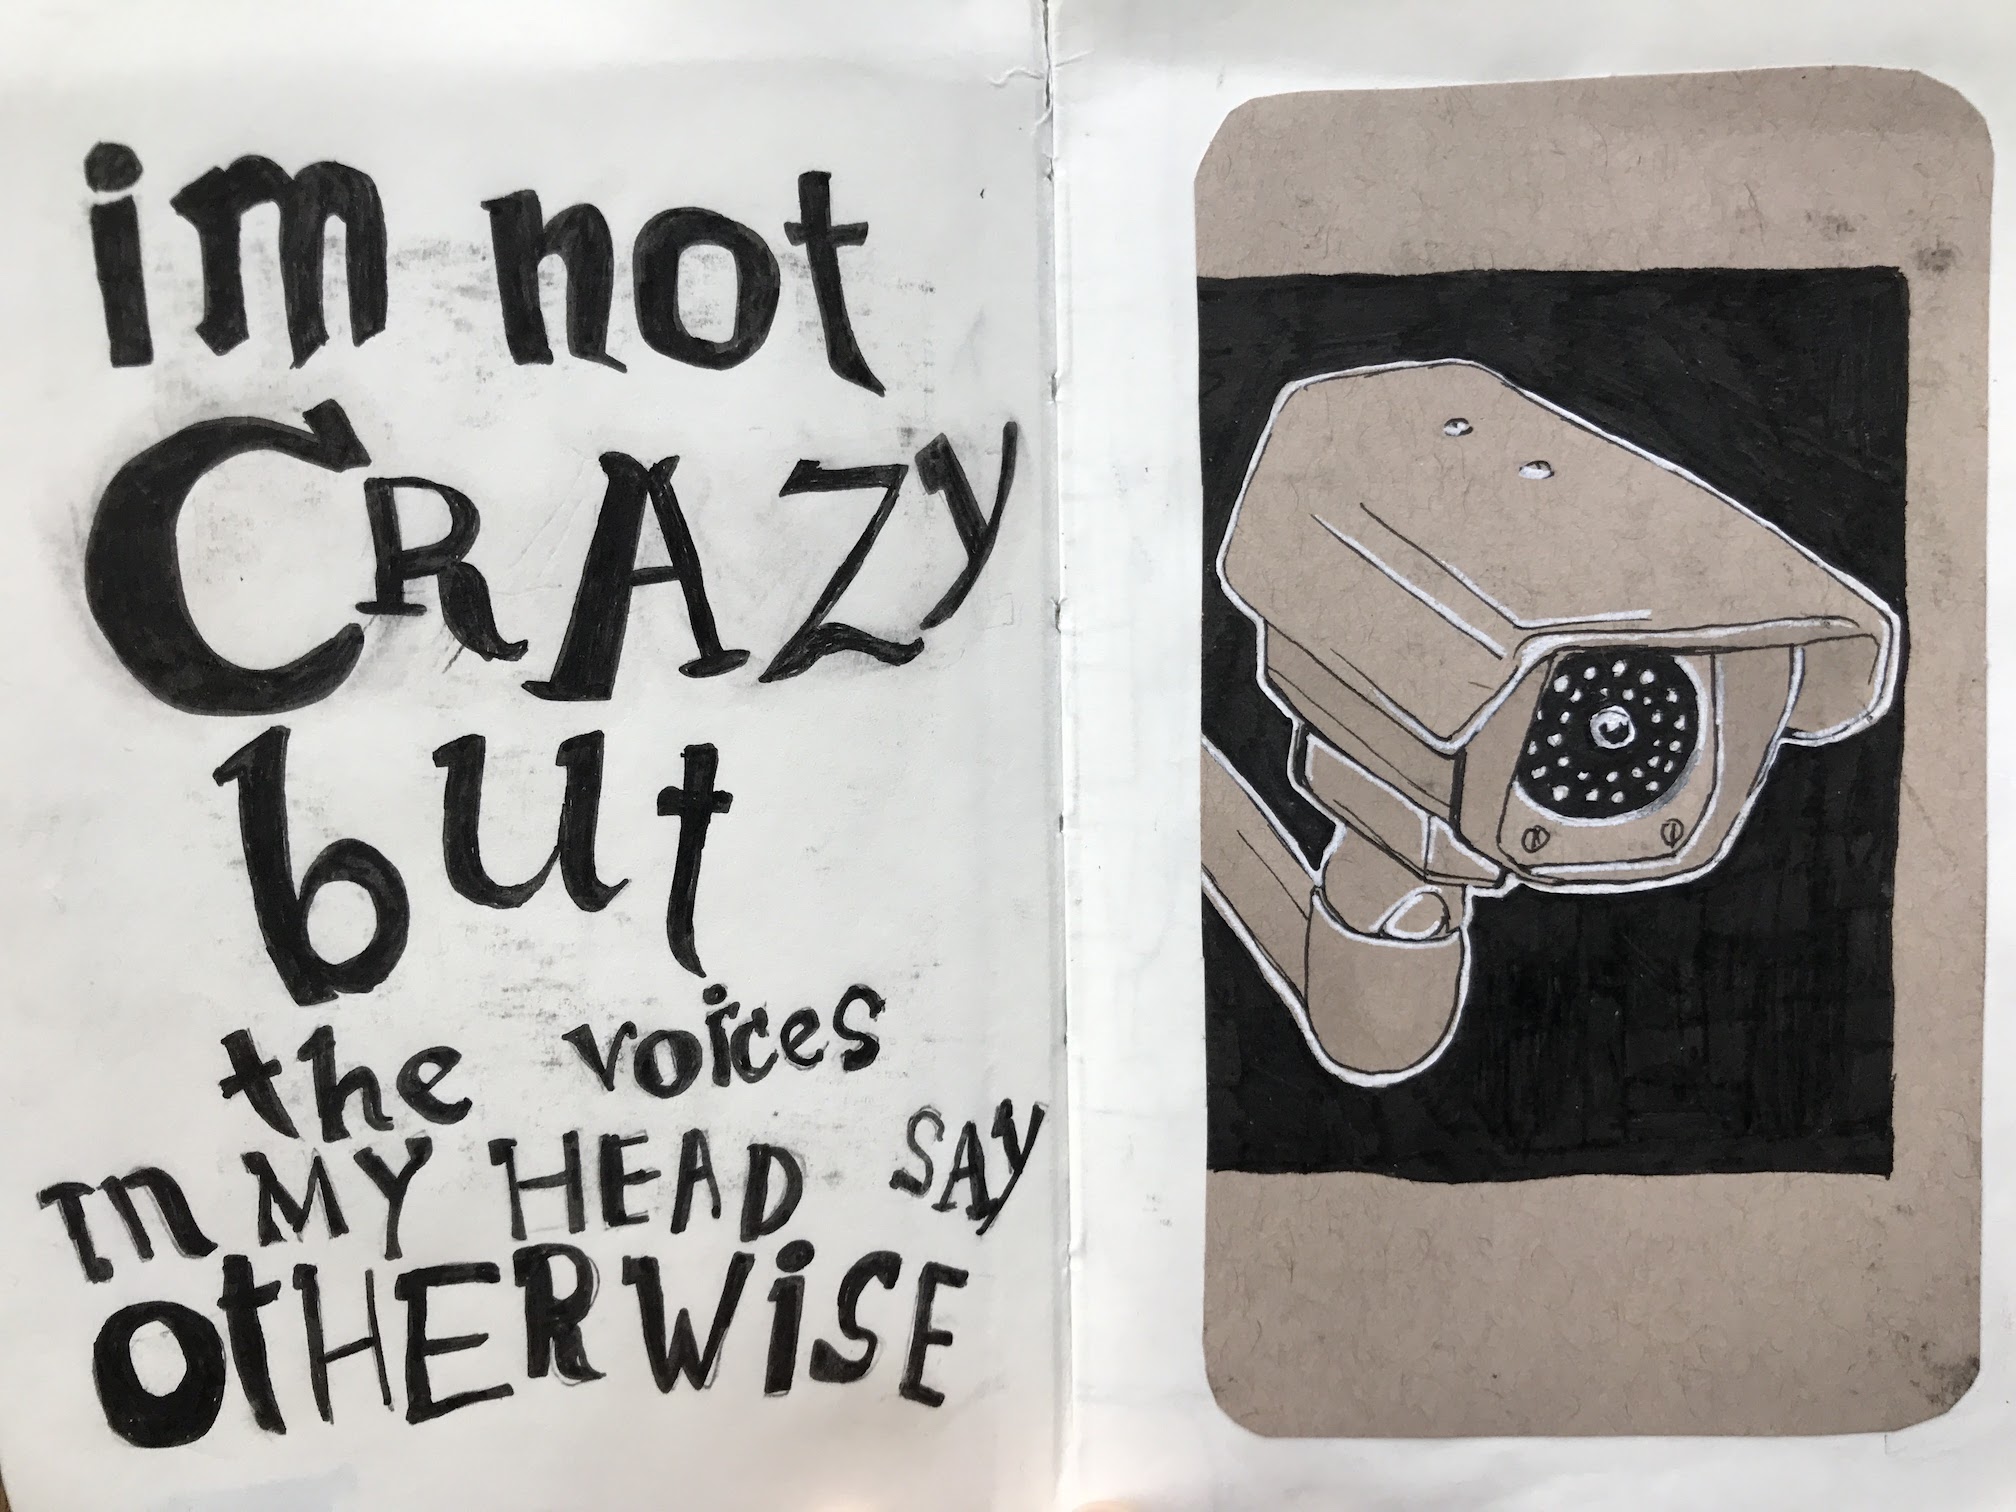 im not
CRAZY
but
the voices
In MY HEAD SAY
OtHERWiSE